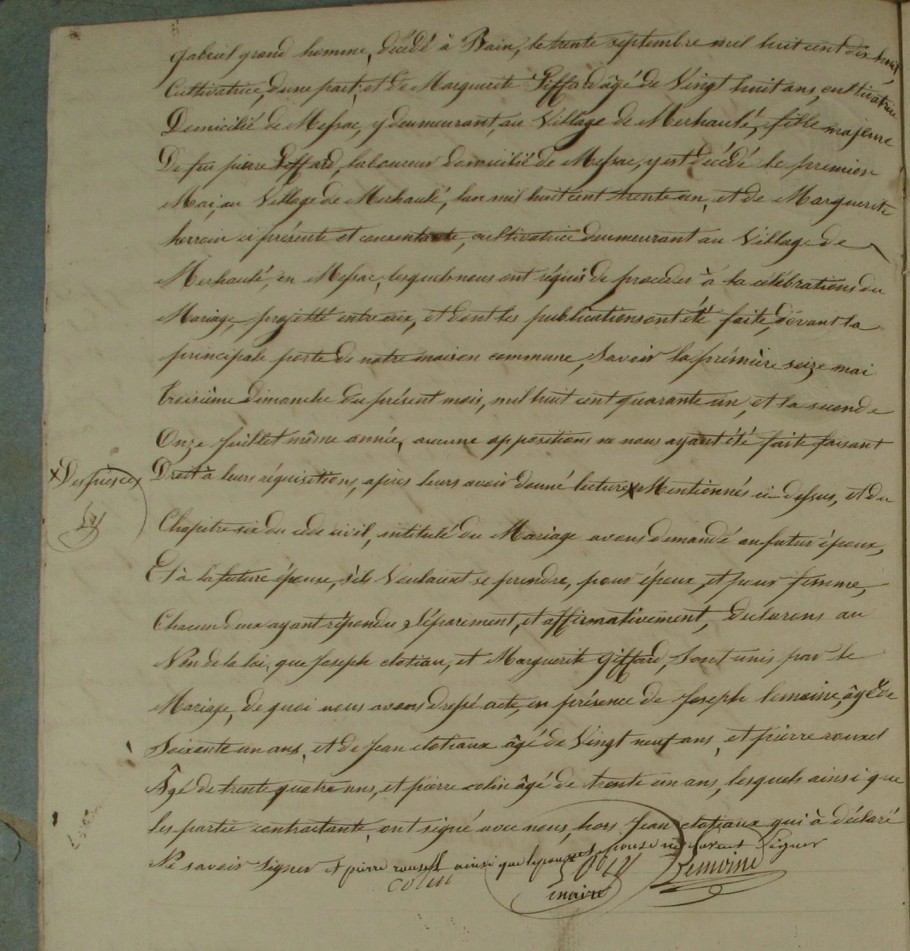 gabriel grand homme, décédé à Bain, le trente septembre mil huit cent dix huit
Cultivatrice, d'une part; et de Marguerite Giffard âgé de Vingt huit ans, cultivatrice
Domicilié de Messac, y deumeurant, au Village de Merhaulé, fille majeure
De feu pierre Giffard, laboureur Domicilié de Messac, y est décédé le premier
Mai, au Village de Merhaulé, l'an mil huit cent trente un, et de Marguerite
ci présente et consentante, cultivatrice deumeurant au Village de
Merhaulé, en Messac, lesquels nous ont réquis de procéder à la célébrations du
Mariage, projetté entre eux, et dont les publications ont été faite, devant la
principale porte de notre maison commune, Savoir la prémière seize mai
troisième dimanche du présent mois, mil huit cent quarante un, et la seconde
Onze Juillet même année, aucune oppositions ne nous ayant été faite faisant
Droit à leurs réquisitions, après leurs avoir donné lecture x Mentionnés ci-dessus, et du
x Des pieces
Chapitre six du code civil, intitulé du Mariage avons demandé au futur époux,
Et à la future épouse, s'ils Veulaient se prendre, pour époux, et pour femme,
Chacun d'eux ayant répondu Séparement, et affirmativement, Déclarons au
Nom de la loi, que Joseph clotiau, et Marguerite Giffard, Sont unis par le
Mariage, de quoi nous avons dressé acte, en présence de Joseph lemoine, âgé de
Soixente un ans, et de Jean clotiaux âgé de Vingt neuf ans, et pierre rouxel
Âgé de trente quatre ans, et pierre colin âgé de trente un ans, lesquels ainsi que
Les partie contractante, ont signé avec nous, hors Jean clotiaux qui à déclaré
Ne savoir Signer et pierre rouxel ainsi que epouse ne savent Signer
colin
maire
Lemoine